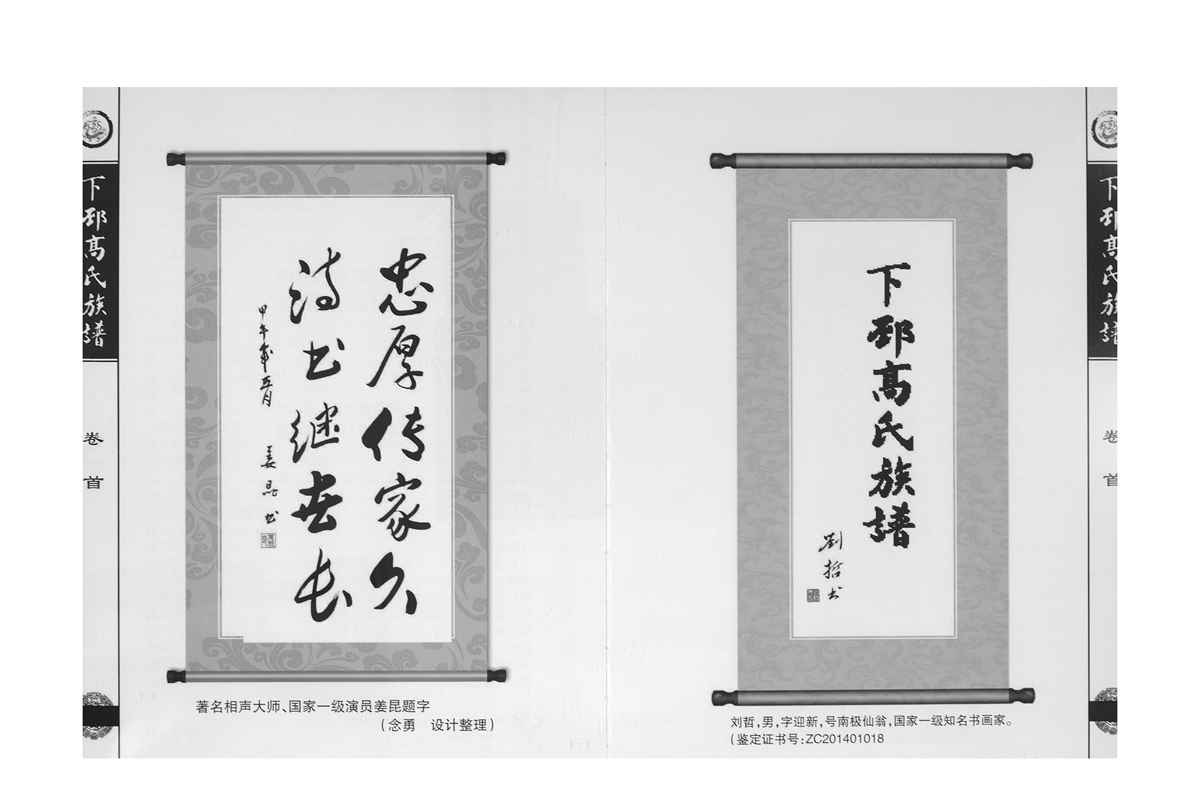 下邳高氏族譜
卷首
忠厚传家久
诗书继世长
甲午年五月 姜昆书
著名相声大师、国家一级演员姜昆题字
(念勇 设计整理)
下邳高氏族譜
劉哲书
刘哲,男,字迎新,号南极仙翁,国家一级知名书画家。
(鉴定证书号:ZC201401018
下邳高氏族譜
卷首